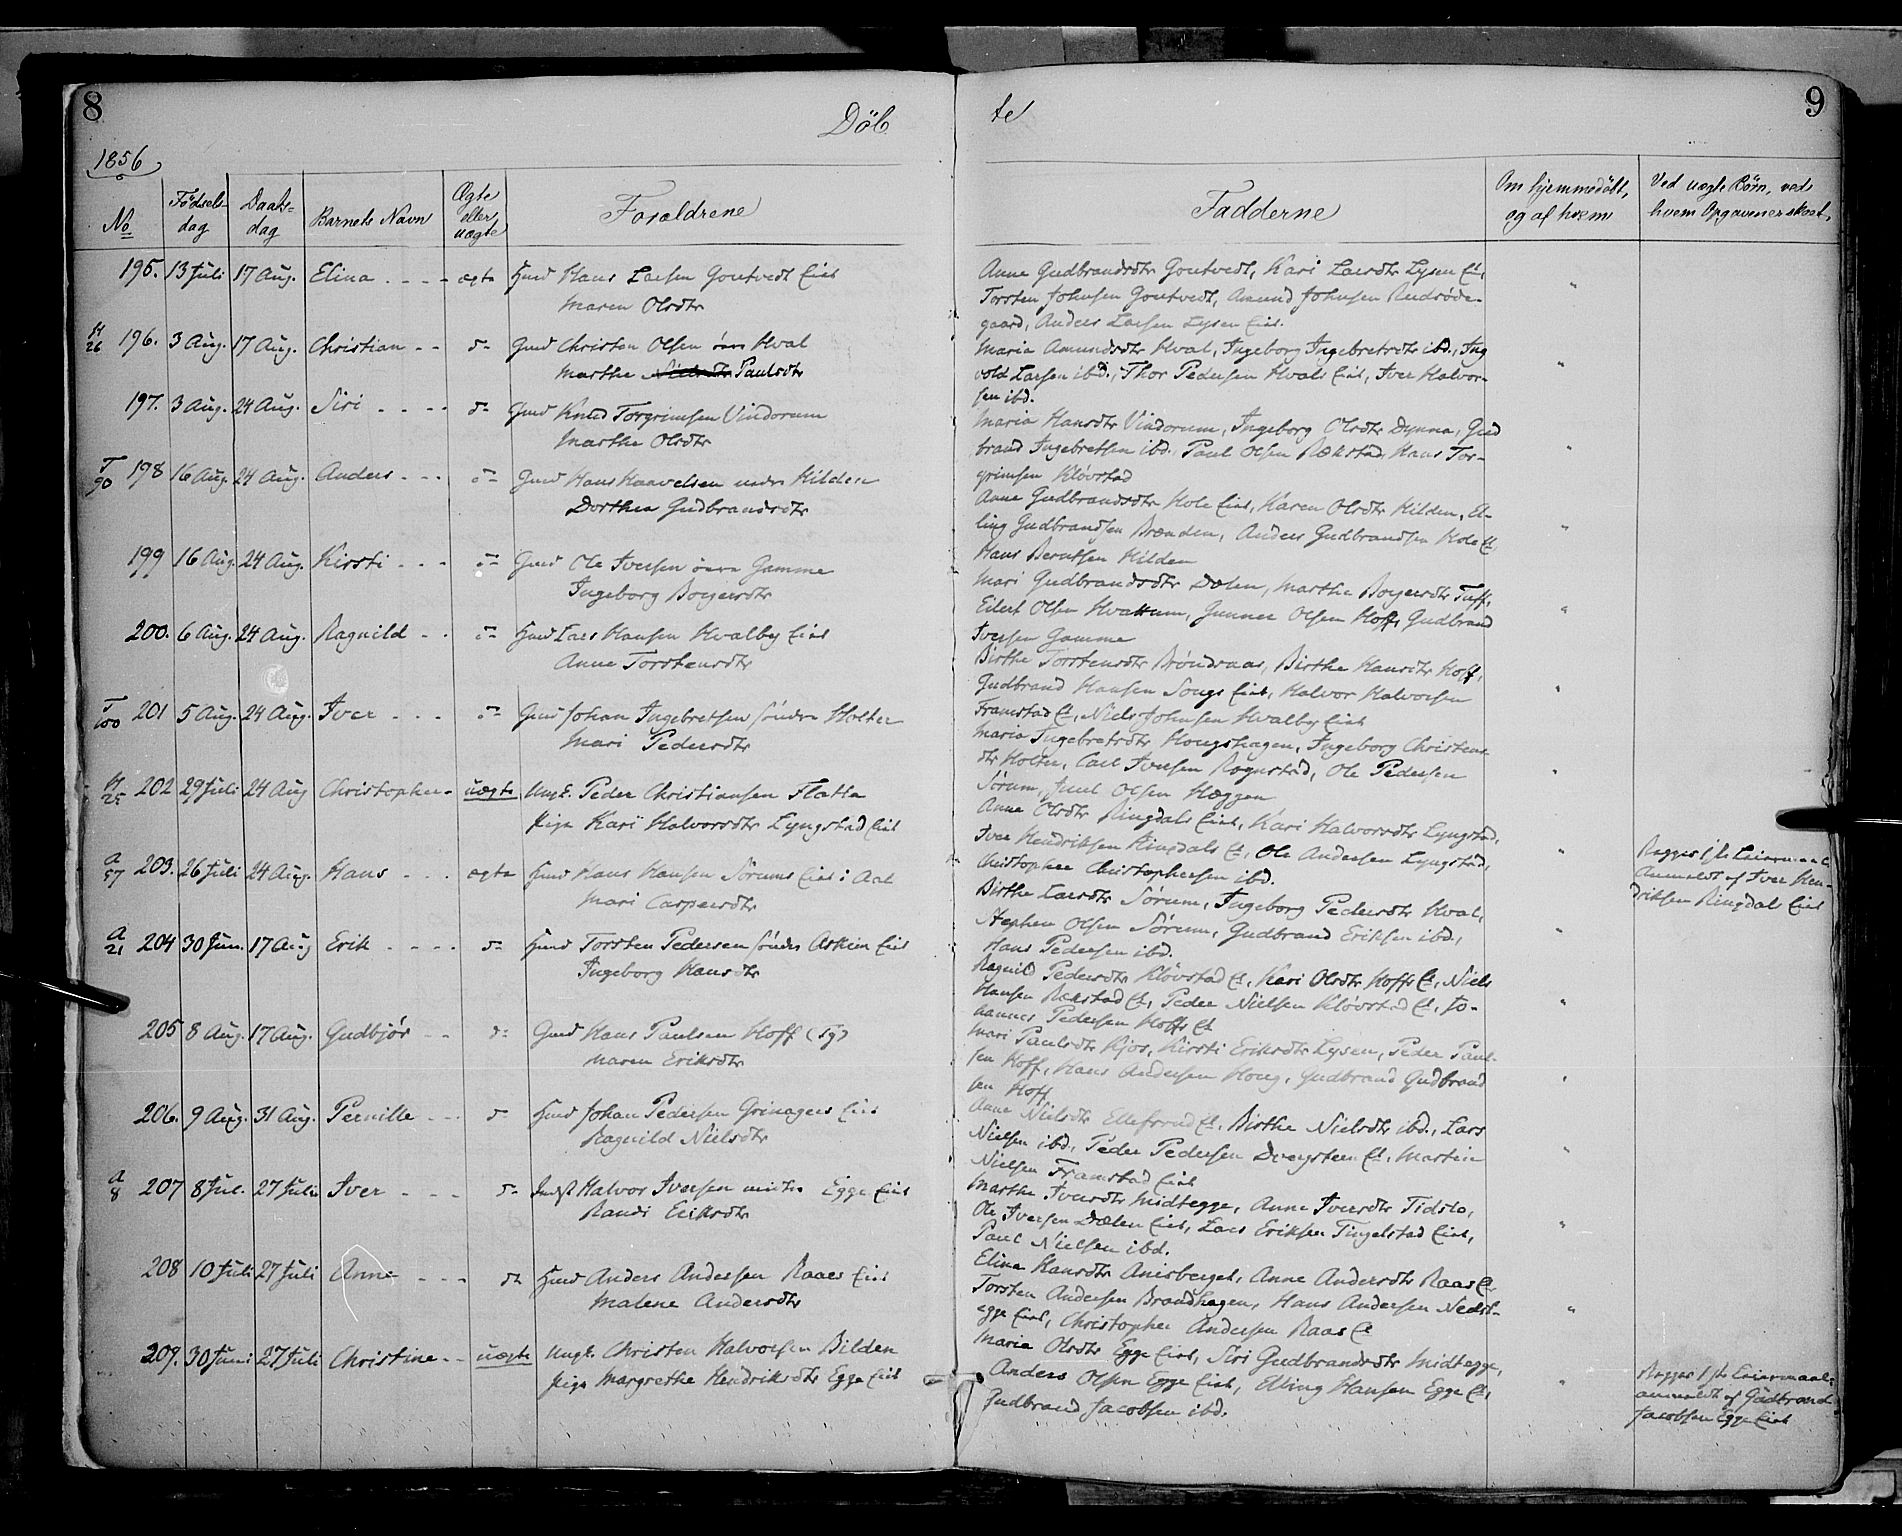 8
Döb
te
9
1856
No
Fødsels-
dag
Daabs-
dag
Barnets Navn
Ægte
eller
uægte
Forældrene
Fadderne
Om hjemmedöbt,
og af hvem
Ved uægte Börn, ved
hvem Opgaven er skeet.
195. 13 Juli 17 Aug. Elina ægte Huusmd Hans Larsen Goutvedt Eiet
Maren Olsdtr
Anne Gudbrandsdtr Goutvedt, Kari Larsdtr Lysen Et,
Torsten Johnsen Goutvedt, Amund Johnsen Rudsøde-
gaard, Anders Larsen Lysen Eiet.
H
26
196. 3 Aug. 17 Aug. Christian do Gmd Christen Olsen Hval
Marthe Paulsdtr
Maria Amundsdtr Hval, Ingeborg Ingebretsdtr ibd., Ing
vold Larsen ibd., Thor Pedersen Hvals Eiet, Iver Halvor-
sen ibd.
197. 3 Aug. 24 Aug. Siri do Gmd Knud Torgrimsen Vindorum
Marthe Olsdtr
Maria Hansdtr Vindorum, Ingeborg Olsdtr Dynna, Gud
brand Ingebretsen ibd., Paul Olsen Rækstad, Hans Tor-
grimsen Kløvstad
T
90
198 16 Aug. 24 Aug. Anders do Gmd Hans Haavelsen nedre Hilden
Dorthea Gudbrandsdtr
Anne Gudbrandsdtr Hole Eiet, Karen Olsdtr Hilden, El-
ling Gudbrandsen Brænden, Anders Gudbrandsen Hole Et,
Hans Berntsen Hilden
199 16 Aug. 24 Aug. Kirsti do Gmd Ole Iversen övre Gamme
Ingeborg Boyersdtr
Mari Gudbrandsdtr Dælen, Marthe Boyersdtr Tuff,
Eilert Olsen Hvattum, Gunner Olsen Hoff, Gudbrand
Iversen Gamme
200. 6 Aug. 24 Aug. Ragnild do Hmd Lars Hansen Hvalby Eiet
Anne Torstensdtr
Birthe Torstensdtr Bröndraas, Birthe Hansdtr Hoff,
Gudbrand Hansen Songs Eiet, Halvor Halvorsen
Framstad Et, Niels Johnsen Hvalby Eiet
T
100
201 5 Aug. 24 Aug. Iver do Gmd Johan Ingebretsen söndre Holter
Mari Pedersdtr
Maria Ingebretsdtr Hougshagen, Ingeborg Christens-
dtr Holter, Carl Iversen Rognstad, Ole Pedersen
Sørum, Juul Olsen Hæggen
H
25
202 29 Juli 24 Aug Christopher uægte Ungk. Peder Christiansen Flatla
Pige Kari Halvorsdtr Lyngstad Eiet
Anne Olsdtr Ringdals Eiet, Kari Halvorsdtr Lyngstad,
Iver Hendriksen Ringdals Et, Ole Andersen Lyngstad,
Christopher Christophersen ibd.
Begges 1ste Leiermaal
Anmeldt af Iver Hen-
driksen Ringdals Eiet
A
57
203. 26 Juli 24 Aug. Hans ægte Hmd Hans Hansen Sörums Eiet i Aal
Mari Caspersdtr
Birthe Larsdtr Sörum, Ingeborg Pedersdtr Hval,
Stephen Olsen Sörum, Gudbrand Eriksen ibd.,
Hans Pedersen ibd.
A
21
204 30 Jun. 17 Aug Erik do Hmd Torsten Pedersen söndre Askim Eiet
Ingeborg Hansdtr
Ragnild Pedersdtr Kløvstad Et, Kari Olsdtr Hoffs Et, Niels
Hansen Rækstad Et, Peder Nielsen Kløvstad Et, Jo-
hannes Pedersen Hoffs Et
205 8 Aug. 17 Aug. Gudbjör do Gmd Hans Paulsen Hoff
Maren Eriksdtr
Mari Paulsdtr Kjos, Kirsti Eriksdtr Lysen, Peder Paul-
sen Hoff, Hans Andersen Houg, Gudbrand Gudbrand
sen Hoff
206. 9 Aug. 31 Aug. Pernille do Hmd Johan Pedersen Grinagers Eiet
Ragnild Nielsdtr
Anne Nielsdtr Ellefsrud Et, Birthe Nielsdtr ibd., Lars
Nielsen ibd., Peder Pedersen Dvergsteen Et, Martin
Nielsen Framstad Eiet
A
8
207 8 Jul. 27 Juli Iver do Indst Halvor Iversen midtre Egge Eiet
Randi Eriksdtr
Marthe Iversdtr Midtegge, Anne Iversdtr Tidslo,
Ole Iversen Dælen Eiet, Lars Eriksen Tingelstad Eiet,
Paul Nielsen ibd.
208 10 Juli 27 Juli Anne do Hmd Anders Andersen Raaes Eiet
Malene Andersdtr
Eline Hansdtr Anisberget, Anne Andersdtr Raas Et
Torsten Andersen Brandhagen, Hans Andersen Nedst-
egge Eiet, Christopher Andersen Raas Et
209. 30 Juni 27 Juli Christine uægte Ungk. Christen Halvorsen Bilden
Pige Margrethe Hendriksdtr Egge Eiet
Maria Olsdtr Egge Eiet, Siri Gudbrandsdtr Midtegge,
Anders Olsen Egge Eiet, Elling Hansen Egge Et,
Gudbrand Jacobsen ibd.
Begges 1ste Leiermaal
anmeldt af Gudbrand
Jacobsen Egge Eiet